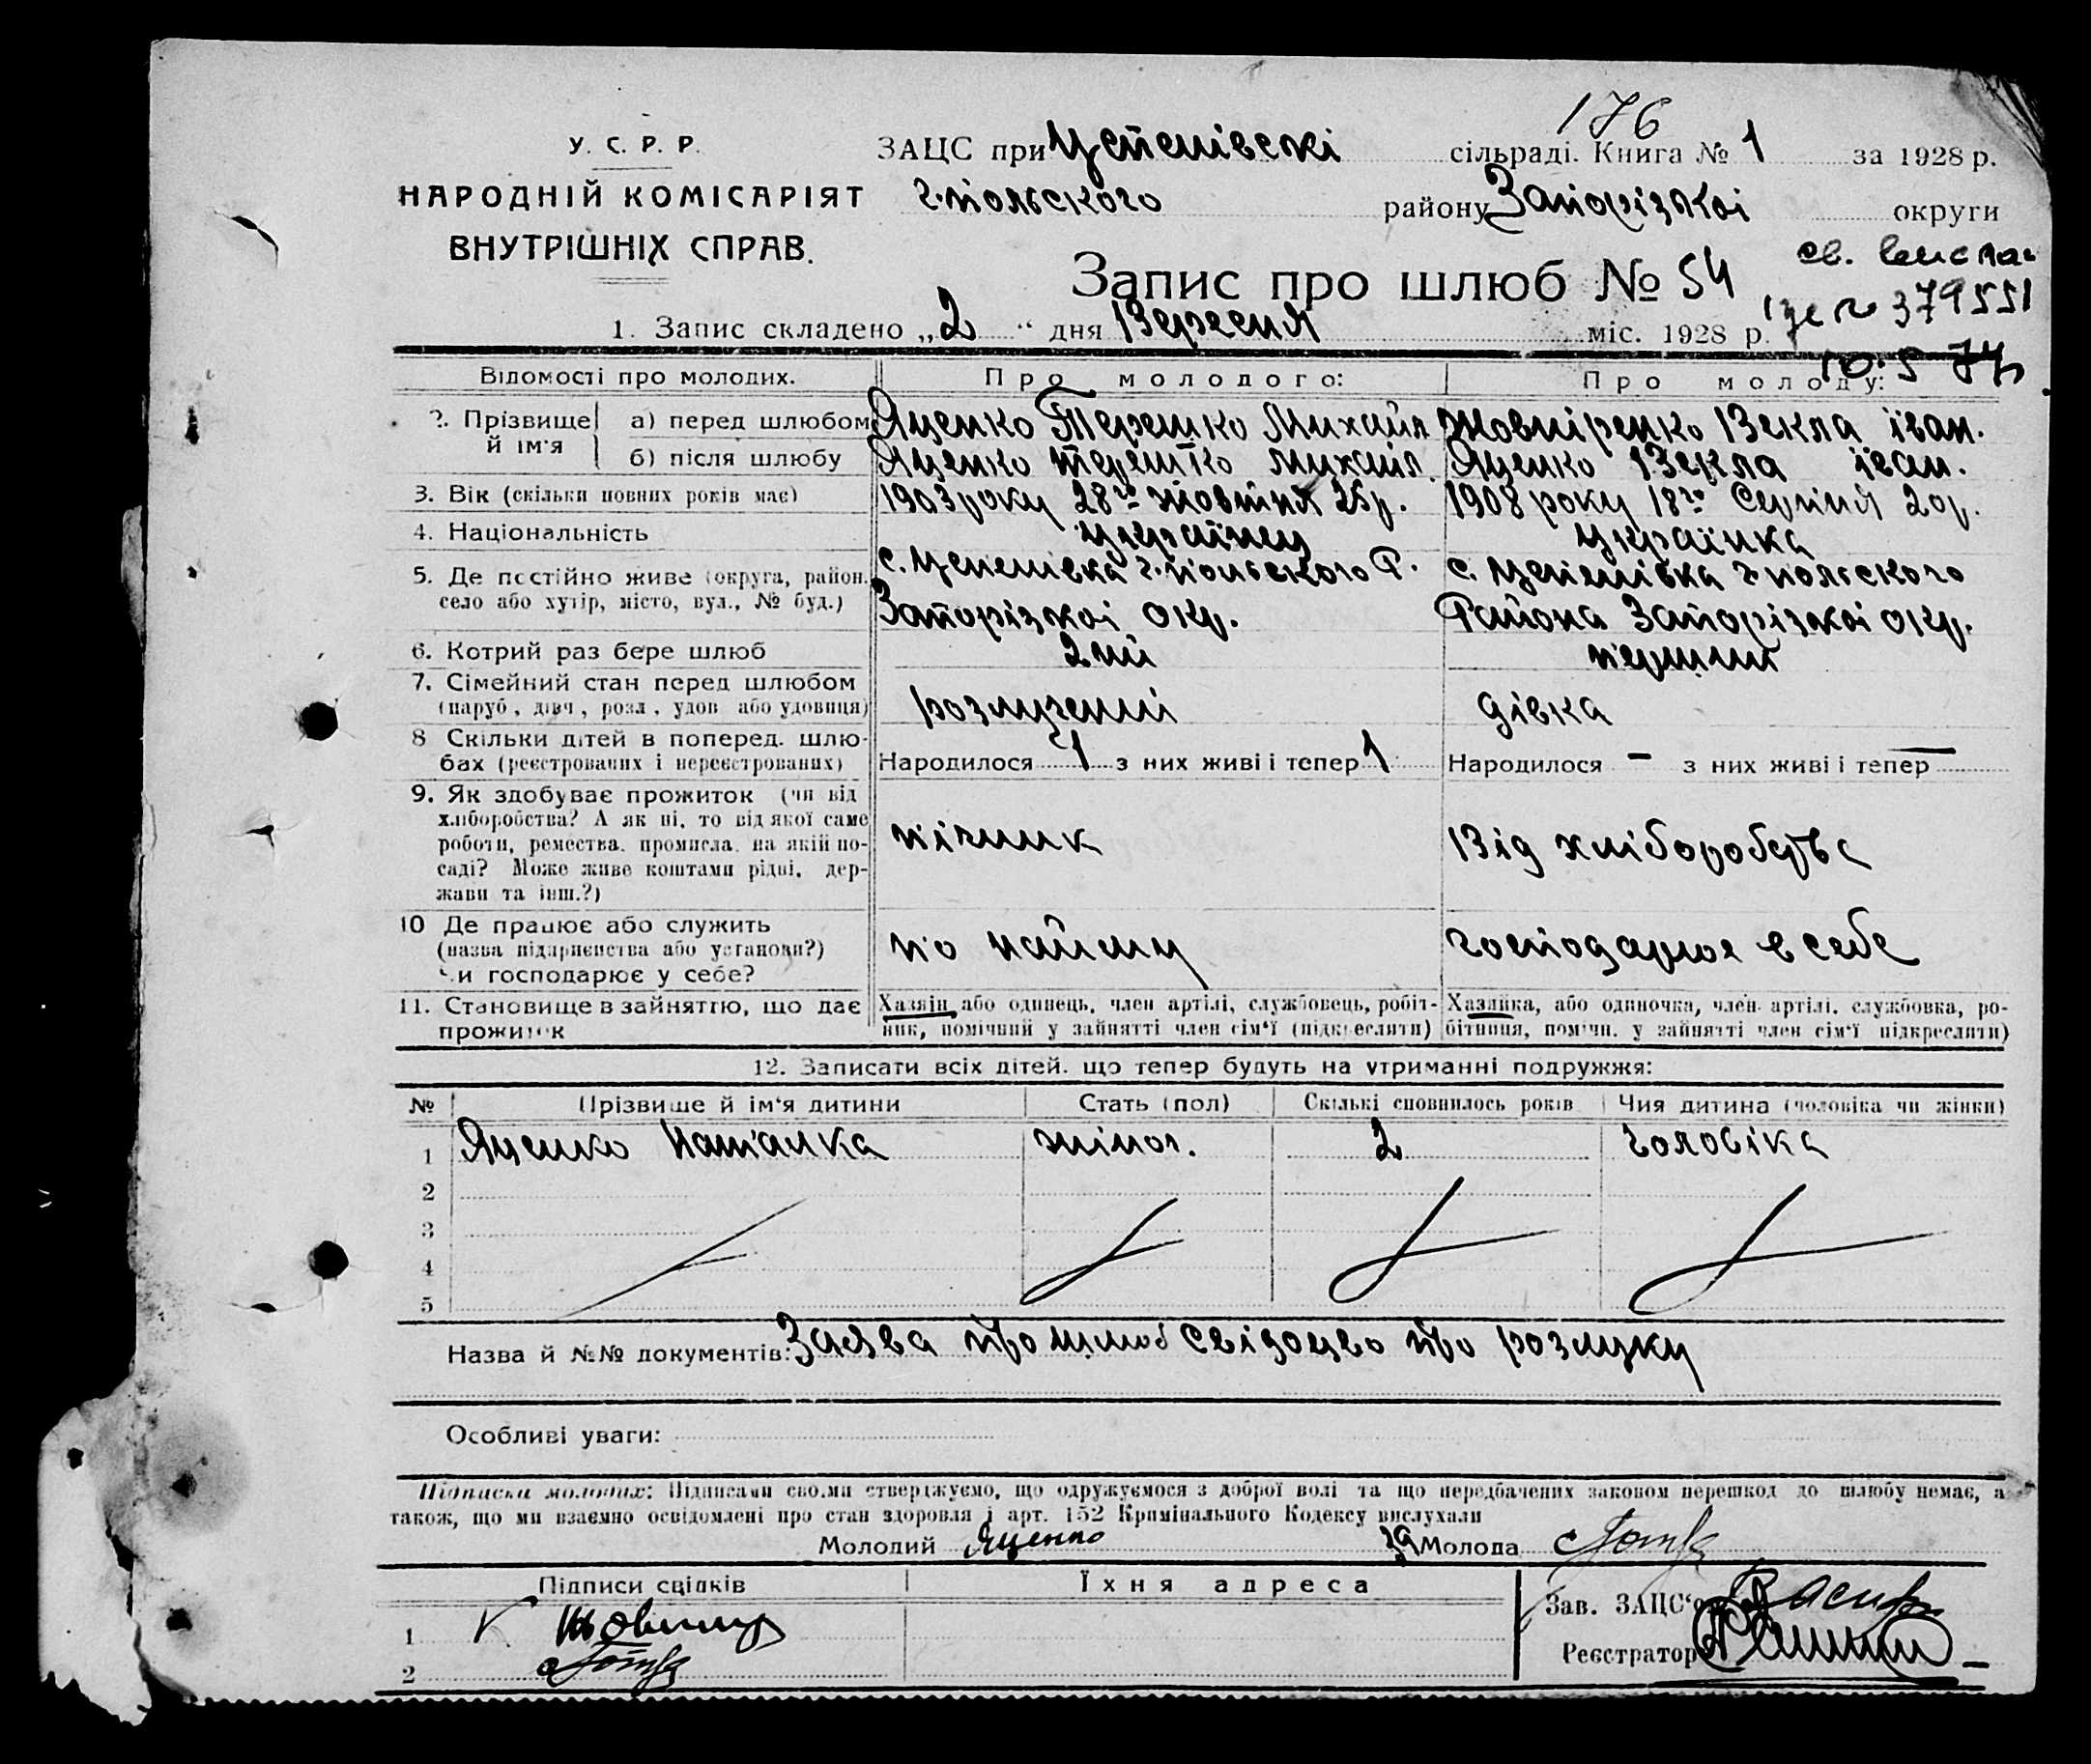 176
У. С. Р. Р.
НАРОДНІЙ КОМІСАРІЯТ
ВНУТРІШНІХ СПРАВ.
ЗАЦС при Успенівскі сільраді. Книга № 1 за 1928 р.
г.польского району Запорізкоі округи
Запис про шлюб № 54
св.
379551
10.5 74
1. Запис складено „2“ дня Вересня міс. 1928 р.
Відомості про молодих. Про молодого: Про молоду:
2. Прізвище й ім'я а) перед шлюбом Яценко Терешко Михайл Жовніренко Векла іван.
б) після шлюбу Яценко терешко михаіл. Яценко Векла іван.
3. Вік (скільки повних років має) 1903 року 28го жовтня 25р. 1908 року 18го Серпня 20р.
4. Національність українец українка
5. Де постійно живе (округа, район, село або хутір, місто, вул., № буд.) с. Успенівка г.польского Р. Запорізкоі окр. с. Успенівка г.польского Района Запорізкоі окр.
6. Котрий раз бере шлюб 2ий перший
7. Сімейний стан перед шлюбом (паруб., дівч., розл., удов. або удовиця) розлучений дівка
8 Скільки дітей в поперед. шлюбах (реєстрованих і нереєстрованих) Народилося 1 з них живі і тепер 1 Народилося – з них живі і тепер —
9. Як здобуває прожиток (чи від хліборобства? А як ні, то від якої саме роботи, ремества, промисла, на якій посаді? Може живе коштами рідні, держави та інш.?) пічник Від хліборобства
10 Де працює або служить (назва підприємства або установи?) Чи господарює у себе? по найму господарює в себе
11. Становище в зайняттю, що дає прожиток Хазяїн або одинець, член артілі, службовець, робітник, помічний у зайнятті член сім'ї (підкреслити) Хазяйка, або одиночка, член артілі, службовка, робітниця, помічн. у зайнятті член сім'ї підкреслити)
12. Записати всіх дітей, що тепер будуть на утриманні подружжя:
№ Прізвище й ім'я дитини Стать (пол) Скількі сповнилось років Чия дитина (чоловіка чи жінки)
1 Яценко Наталка жіноч. 2 чоловіка
2
3
4
5
Назва й №№ документів: Заява про шлюб Свідоцво про розлуку
Особливі уваги:
Підписка молодих: Підписами своїми стверджуємо, що одружуємося з доброї волі та що передбачених законом перешкод до шлюбу немає, а
також, що ми взаємно освідомлені про стан здоровля і арт. 152 Кримінального Кодексу вислухали
Молодий Яценко за Молода
Підписи свідків Їхня адреса
Зав. ЗАЦС'ом
1
Реєстратор
2